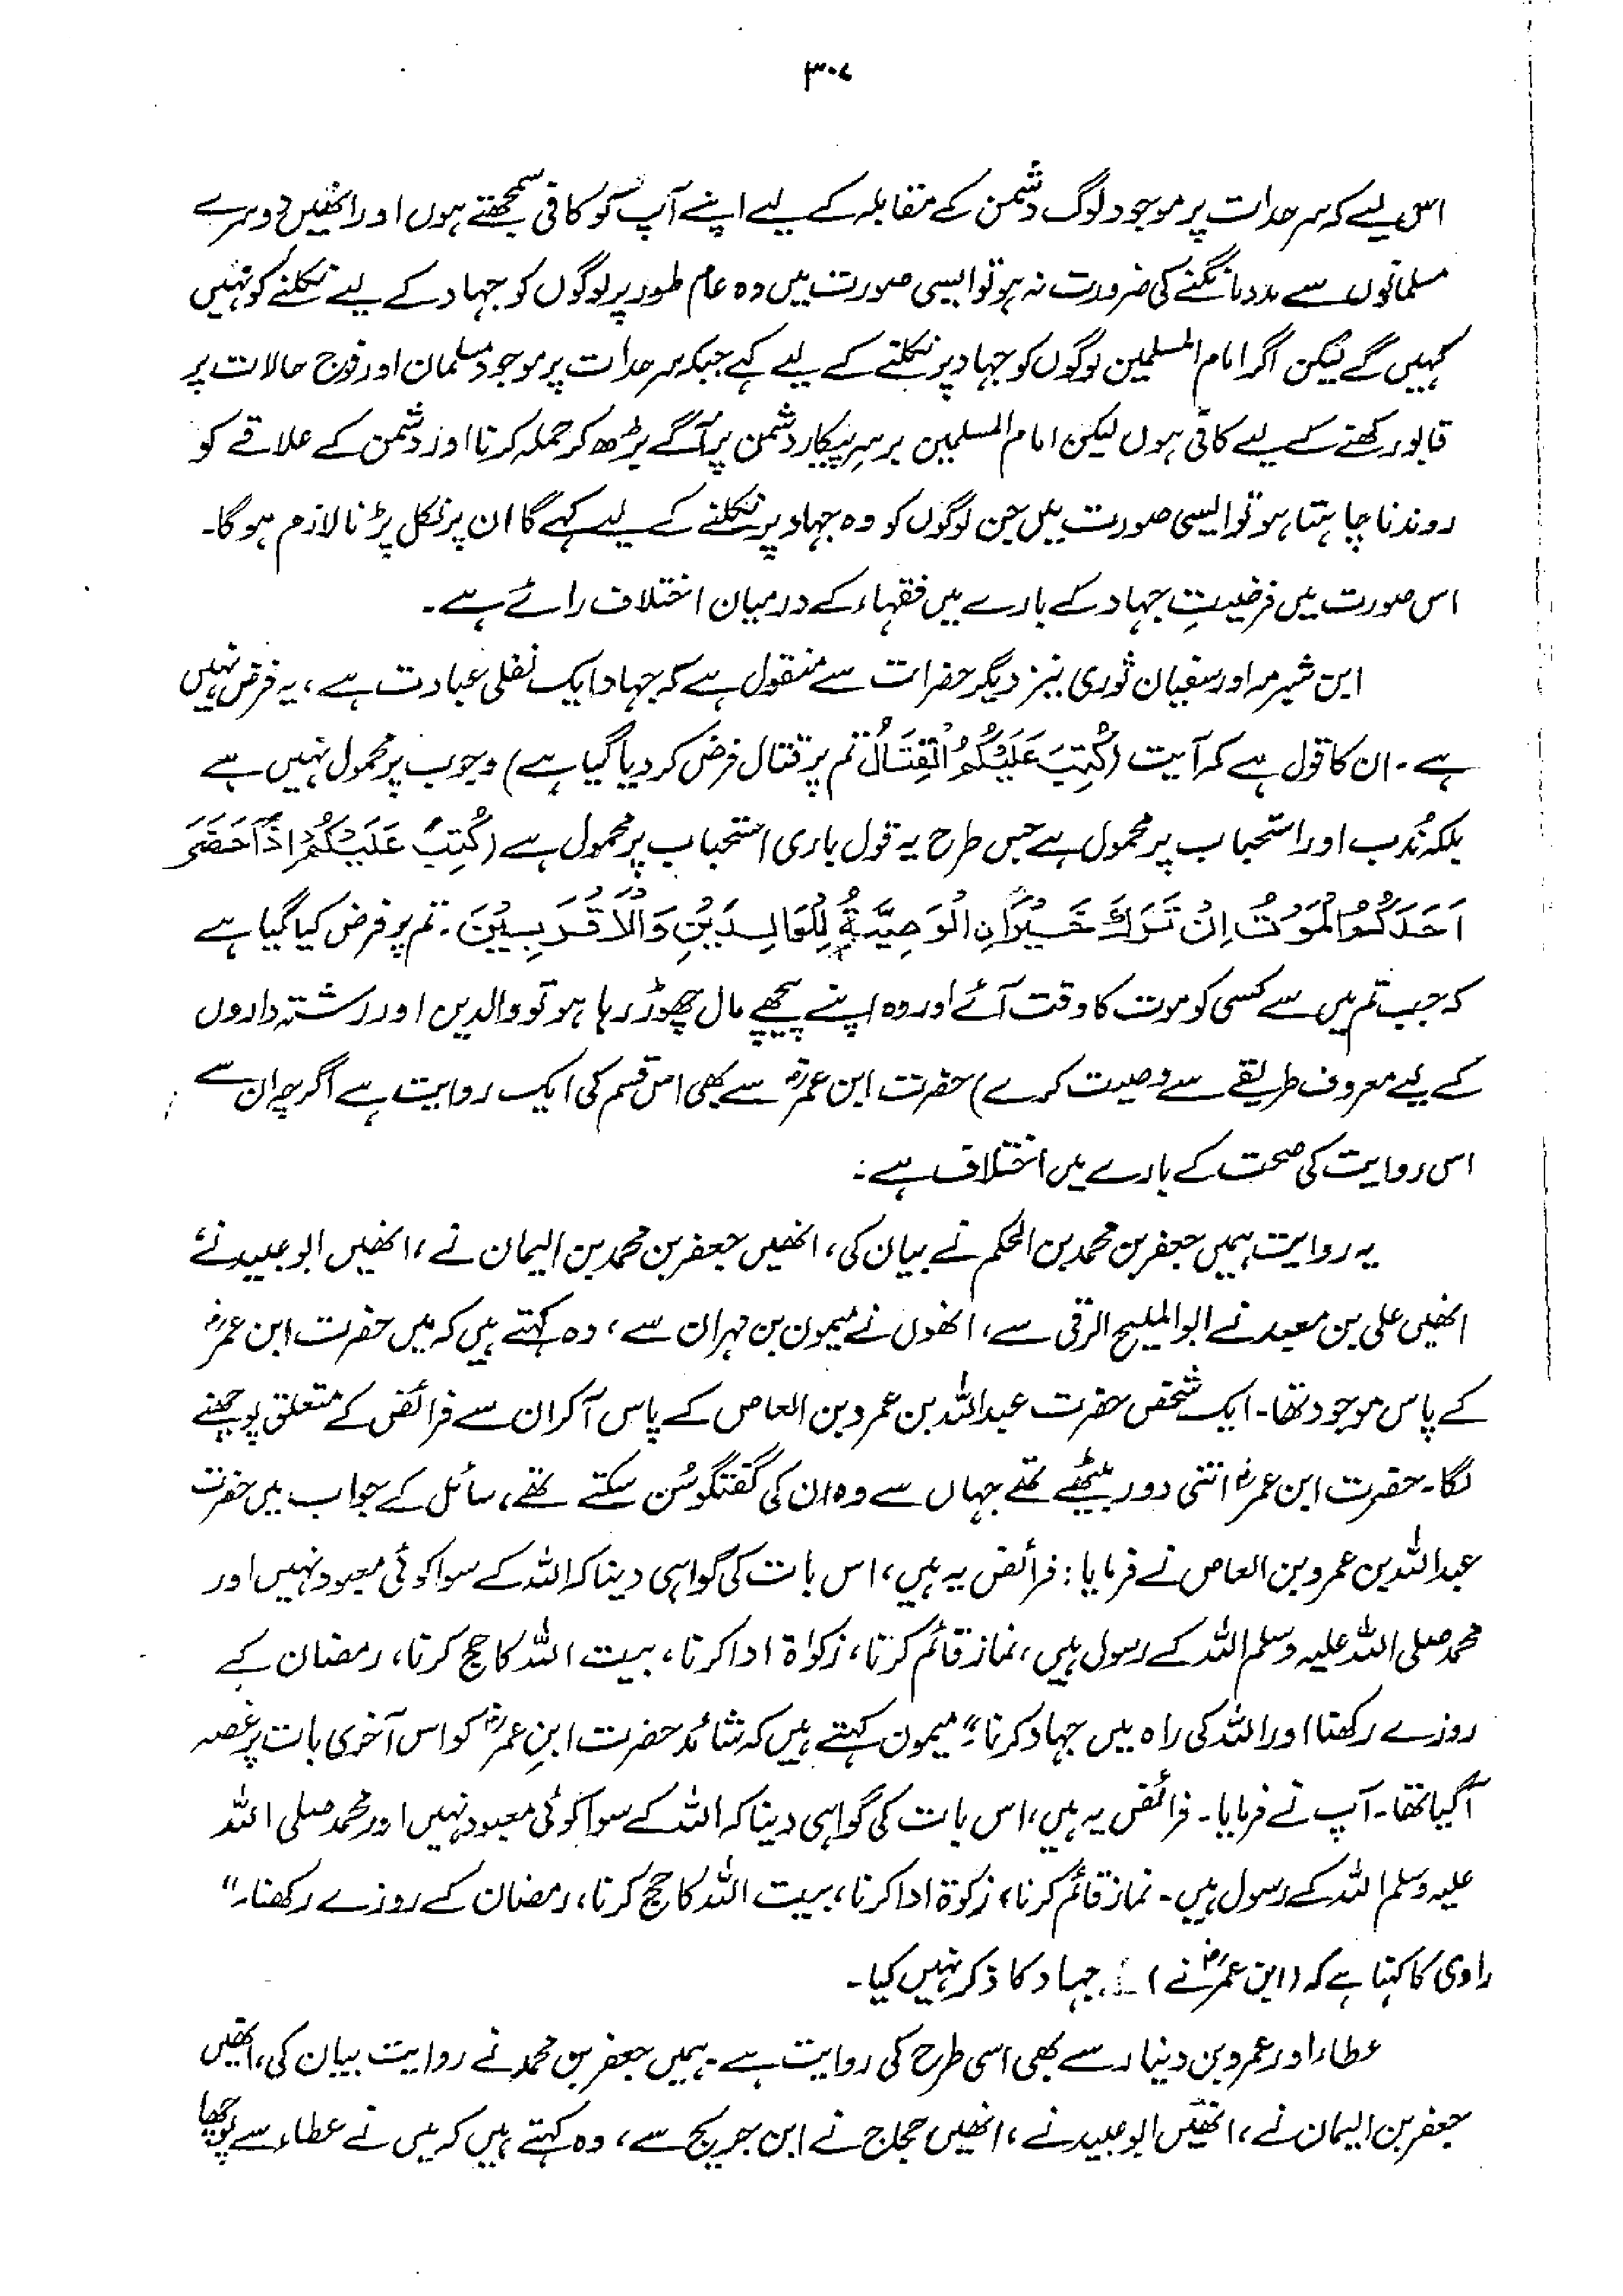 ۳۰۷
اس لیے کہ سرحدات پر موجود لوگ دشمن کے مقابلہ کے لیے اپنے آپ کو کافی سمجھتے ہوں اور انھیں دوسرے
مسلمانوں سے مدد مانگنے کی ضرورت نہ ہو تو ایسی صورت میں وہ عام طور پر لوگوں کو جہاد کے لیے نکلنے کو نہیں
کہیں گے لیکن اگر امام المسلمین لوگوں کو جہاد پر نکلنے کے لیے کہے جبکہ سرحدات پر موجود مسلمان اور فوج حالات پر
قابو رکھنے کے لیے کافی ہوں لیکن امام المسلمین برسرِ پیکار دشمن پر آگے بڑھ کر حملہ کرنا اور دشمن کے علاقے کو
روندنا چاہتا ہو تو ایسی صورت میں جن لوگوں کو وہ جہاد پر نکلنے کے لیے کہے گا ان پر نکل پڑنا لازم ہوگا۔
اس صورت میں فرضیتِ جہاد کے بارے میں فقہاء کے درمیان اختلاف رائے ہے۔
ابن شبرمہ اور سفیان ثوری نیز دیگر حضرات سے منقول ہے کہ جہاد ایک نفلی عبادت ہے، یہ فرض نہیں
ہے۔ ان کا قول ہے کہ آیت (كُتِبَ عَلَيْكُمُ الْقِتَالُ تم پر قتال فرض کر دیا گیا ہے) وجوب پر محمول نہیں ہے
بلکہ نُدب اور استحباب پر محمول ہے جس طرح یہ قول باری استحباب پر محمول ہے (كُتِبَ عَلَيْكُمْ اِذَا حَضَرَ
اَحَدَكُمُ الْمَوْتُ اِنْ تَرَكَ خَيْرًا نِ الْوَصِيَّةُ لِلْوَالِدَيْنِ وَالْاَقْرَبِيْنَ۔ تم پر فرض کیا گیا ہے
کہ جب تم میں سے کسی کو موت کا وقت آئے اور وہ اپنے پیچھے مال چھوڑ رہا ہو تو والدین اور رشتہ داروں
کے لیے معروف طریقے سے وصیت کرے) حضرت ابن عمرؓ سے بھی اس قسم کی ایک روایت ہے اگرچہ ان سے
اس روایت کی صحت کے بارے میں اختلاف ہے۔
یہ روایت ہمیں جعفر بن محمد بن الحکم نے بیان کی، انھیں جعفر بن محمد بن الیمان نے، انھیں ابو عبید نے،
انھیں علی بن معبد نے ابو الملیح الرقی سے، انھوں نے میمون بن مہران سے، وہ کہتے ہیں کہ میں حضرت ابن عمرؓ
کے پاس موجود تھا۔ ایک شخص حضرت عبداللہ بن عمرو بن العاص کے پاس آ کر ان سے فرائض کے متعلق پوچھنے
لگا۔ حضرت ابن عمرؓ اتنی دور بیٹھے تھے جہاں سے وہ ان کی گفتگو سُن سکتے تھے، سائل کے جواب میں حضرت
عبداللہ بن عمرو بن العاص نے فرمایا: فرائض یہ ہیں، اس بات کی گواہی دینا کہ اللہ کے سوا کوئی معبود نہیں اور
محمد صلی اللہ علیہ وسلم اللہ کے رسول ہیں، نماز قائم کرنا، زکواۃ ادا کرنا، بیت اللہ کا حج کرنا، رمضان کے
روزے رکھنا اور اللہ کی راہ میں جہاد کرنا“ میمون کہتے ہیں کہ شائد حضرت ابنِ عمرؓ کو اس آخری بات پر غصہ
آ گیا تھا۔ آپ نے فرمایا۔ فرائض یہ ہیں، اس بات کی گواہی دینا کہ اللہ کے سوا کوئی معبود نہیں اور محمد صلی اللہ
علیہ وسلم اللہ کے رسول ہیں۔ نماز قائم کرنا، زکوۃ ادا کرنا، بیت اللہ کا حج کرنا، رمضان کے روزے رکھنا۔“
راوی کا کہنا ہے کہ (ابن عمرؓ نے) جہاد کا ذکر نہیں کیا۔
عطاء اور عمرو بن دینار سے بھی اسی طرح کی روایت ہے۔ ہمیں جعفر بن محمد نے روایت بیان کی، انھیں
جعفر بن الیمان نے، انھیں ابو عبید نے، انھیں حجاج نے ابن جریج سے، وہ کہتے ہیں کہ میں نے عطاء سے پوچھا